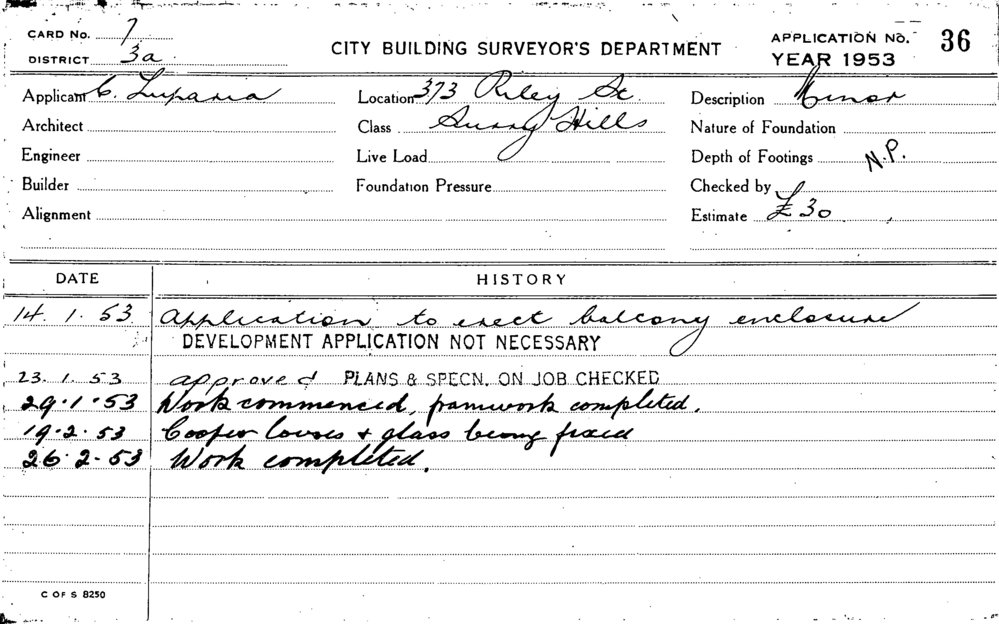 CARD No. 7
DISTRICT 3a
CITY BUILDING SURVEYOR'S DEPARTMENT
APPLICATION No. 36
YEAR 1953
Applicant C. Luparia
Location 373 Riley St.
Description Minor
Architect
Class Surry Hills
Nature of Foundation
Engineer
Live Load
Depth of Footings N.P.
Builder
Foundation Pressure
Checked by
Alignment
Estimate £30
DATE HISTORY
14.1.53 Application to erect balcony enclosure
DEVELOPMENT APPLICATION NOT NECESSARY
23.1.53 approved PLANS & SPECN. ON JOB CHECKED
29.1.53 Work commenced, framwork completed.
19.2.53 Cooper & glass being fixed
26.2.53 Work completed.
C OF S 8250